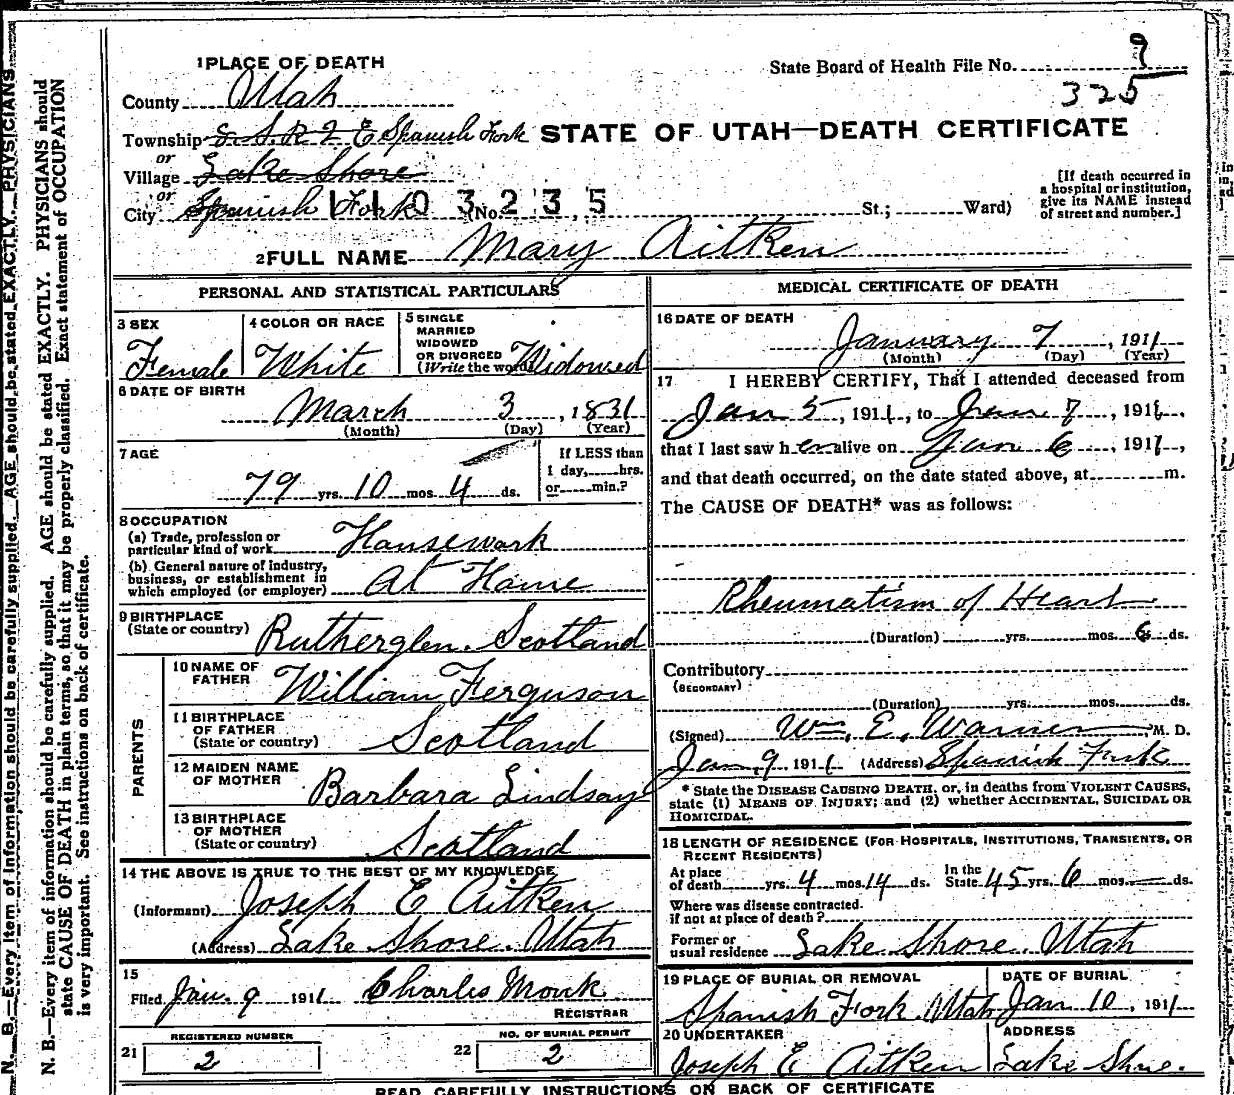 1 PLACE OF DEATH
State Board of Health File No. 9
325
County Utah
Township S. S. R 2 E Spanish Fork
STATE OF UTAH—DEATH CERTIFICATE
or
Village Lake Shore
or
City Spanish Fork (No. St.; Ward)
1103235
[If death occurred in
a hospital or institution,
give its NAME instead
of street and number.]
2 FULL NAME Mary Aitken
PERSONAL AND STATISTICAL PARTICULARS
3 SEX
Female
4 COLOR OR RACE
White
5 SINGLE
MARRIED
WIDOWED
OR DIVORCED
(Write the word) Widowed
6 DATE OF BIRTH
March 3, 1831
(Month) (Day) (Year)
7 AGE
79 yrs. 10 mos. 4 ds.
If LESS than
1 day, hrs.
or min.?
8 OCCUPATION
(a) Trade, profession or
particular kind of work Housework
(b) General nature of industry,
business, or establishment in
which employed (or employer) At Home
9 BIRTHPLACE
(State or country) Rutherglen. Scotland
PARENTS
10 NAME OF
FATHER William Ferguson
11 BIRTHPLACE
OF FATHER
(State or country) Scotland
12 MAIDEN NAME
OF MOTHER Barbara Lindsay
13 BIRTHPLACE
OF MOTHER
(State or country) Scotland
14 THE ABOVE IS TRUE TO THE BEST OF MY KNOWLEDGE
(Informant) Joseph E Aitken
(Address) Lake Shore. Utah
15
Filed Jan. 9 1911 Charles Monk
REGISTRAR
REGISTERED NUMBER
21 2
NO. OF BURIAL PERMIT
22 2
MEDICAL CERTIFICATE OF DEATH
16 DATE OF DEATH
January 7, 1911
(Month) (Day) (Year)
17 I HEREBY CERTIFY, That I attended deceased from
Jan 5, 1911, to Jan 7, 1911,
that I last saw her alive on Jan 6, 1911,
and that death occurred, on the date stated above, at m.
The CAUSE OF DEATH* was as follows:
Rheumatism of Heart
(Duration) yrs. mos. 6 ds.
Contributory
(SECONDARY)
(Duration) yrs. mos. ds.
(Signed) Wm. E. Warner, M. D.
Jan. 9 1911 (Address) Spanish Fork
* State the DISEASE CAUSING DEATH, or, in deaths from VIOLENT CAUSES,
state (1) MEANS OF INJURY; and (2) whether ACCIDENTAL, SUICIDAL OR
HOMICIDAL.
18 LENGTH OF RESIDENCE (FOR HOSPITALS, INSTITUTIONS, TRANSIENTS, OR
RECENT RESIDENTS)
At place
of death yrs. 4 mos. 14 ds.
In the
State 45 yrs. 6 mos. — ds.
Where was disease contracted.
if not at place of death?
Former or
usual residence Lake Shore. Utah
19 PLACE OF BURIAL OR REMOVAL
Spanish Fork. Utah
DATE OF BURIAL
Jan 10, 1911
20 UNDERTAKER
Joseph E Aitken
ADDRESS
Lake Shore.
READ CAREFULLY INSTRUCTIONS ON BACK OF CERTIFICATE
N. B.—Every item of information should be carefully supplied. AGE should be stated EXACTLY. PHYSICIANS should
state CAUSE OF DEATH in plain terms, so that it may be properly classified. Exact statement of OCCUPATION
is very important. See instructions on back of certificate.
N. B.—Every item of information should be carefully supplied. AGE should be stated EXACTLY. PHYSICIANS